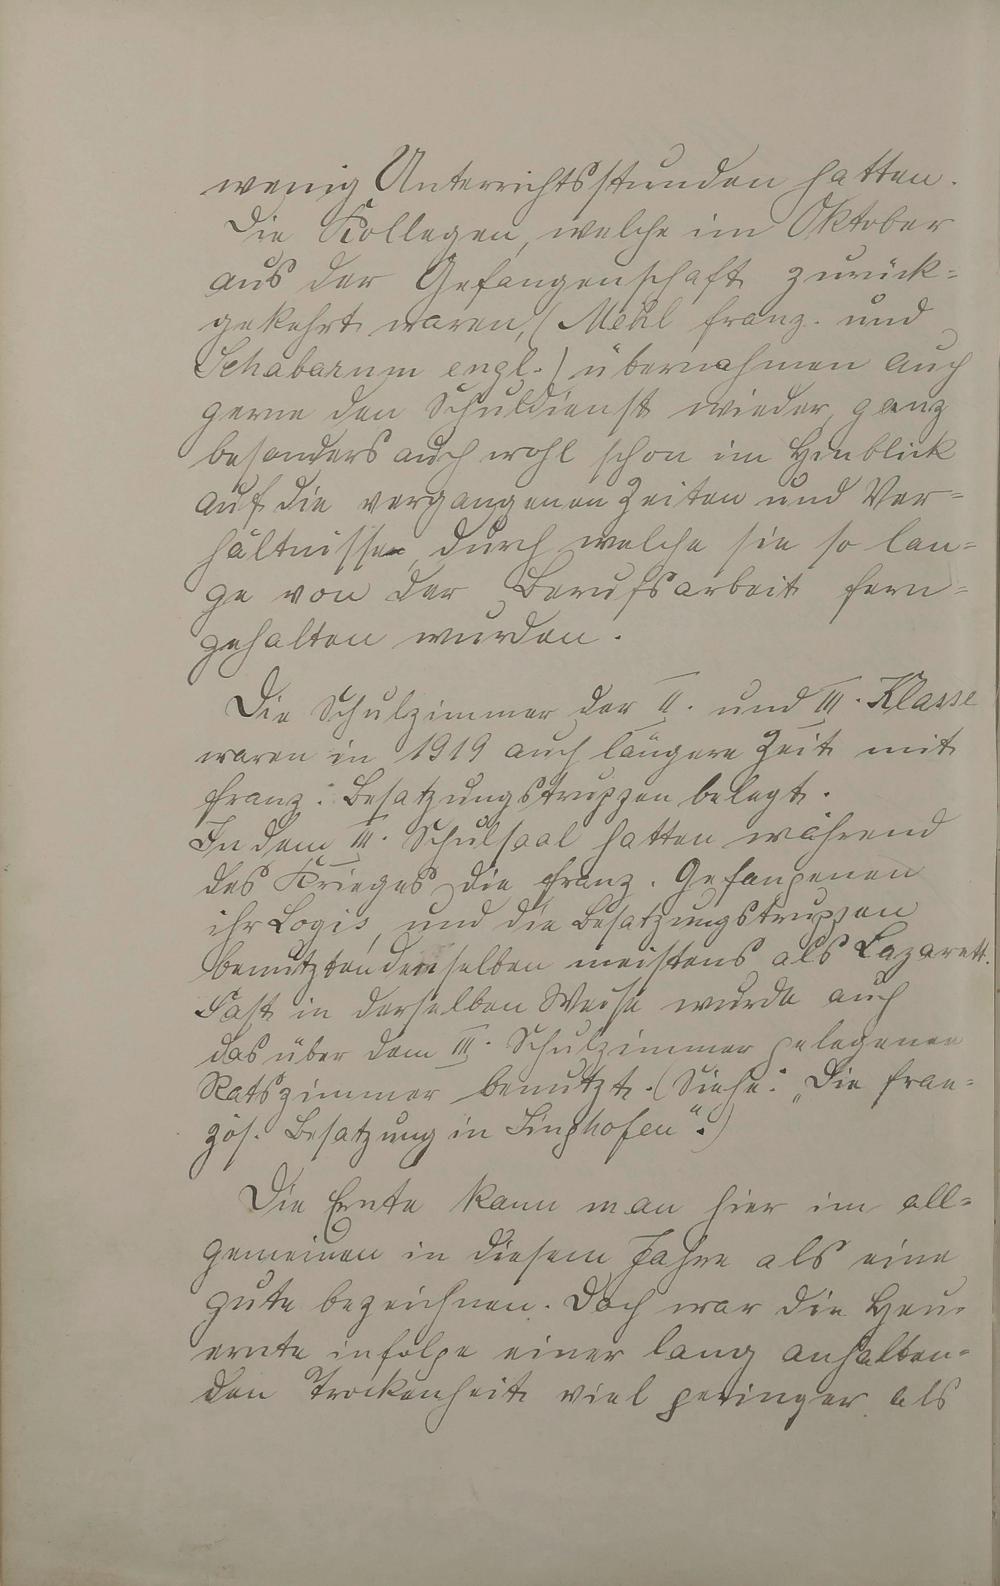 wenig Unterrichtsstunden hatten.
Die Kollegen, welche im Oktober
aus der Gefangenschaft zurück-
gekehrt waren, (Mehl franz. und
Schabarum engl.) übernahmen auch
gerne den Schuldienst wieder, ganz
besonders auch wohl schon im Hinblick
auf die vergangenen Zeiten und Ver-
hältnisse, durch welche sie so lan-
ge von der Berufsarbeit fern-
gehalten wurden.
Die Schulzimmer der II. und III. Klasse
waren in 1919 auch längere Zeit mit
franz. Besatzungstruppen belegt.
In dem III. Schulsaal hatten während
des Krieges die franz. Gefangenen
ihr Logis, und die Besatzungstruppen
benutzten denselben meistens als Lazarett.
Fast in derselben Weise wurde auch
das über dem III. Schulzimmer gelegene
Ratszimmer benutzt. (Siehe: „Die fran-
zös. Besatzung in Singhofen“.)
Die Ernte kann man hier im all-
gemeinen in diesem Jahre als eine
gute bezeichnen. Doch war die Heu-
ernte infolge einer lang anhalten-
den Trockenheit viel geringer als